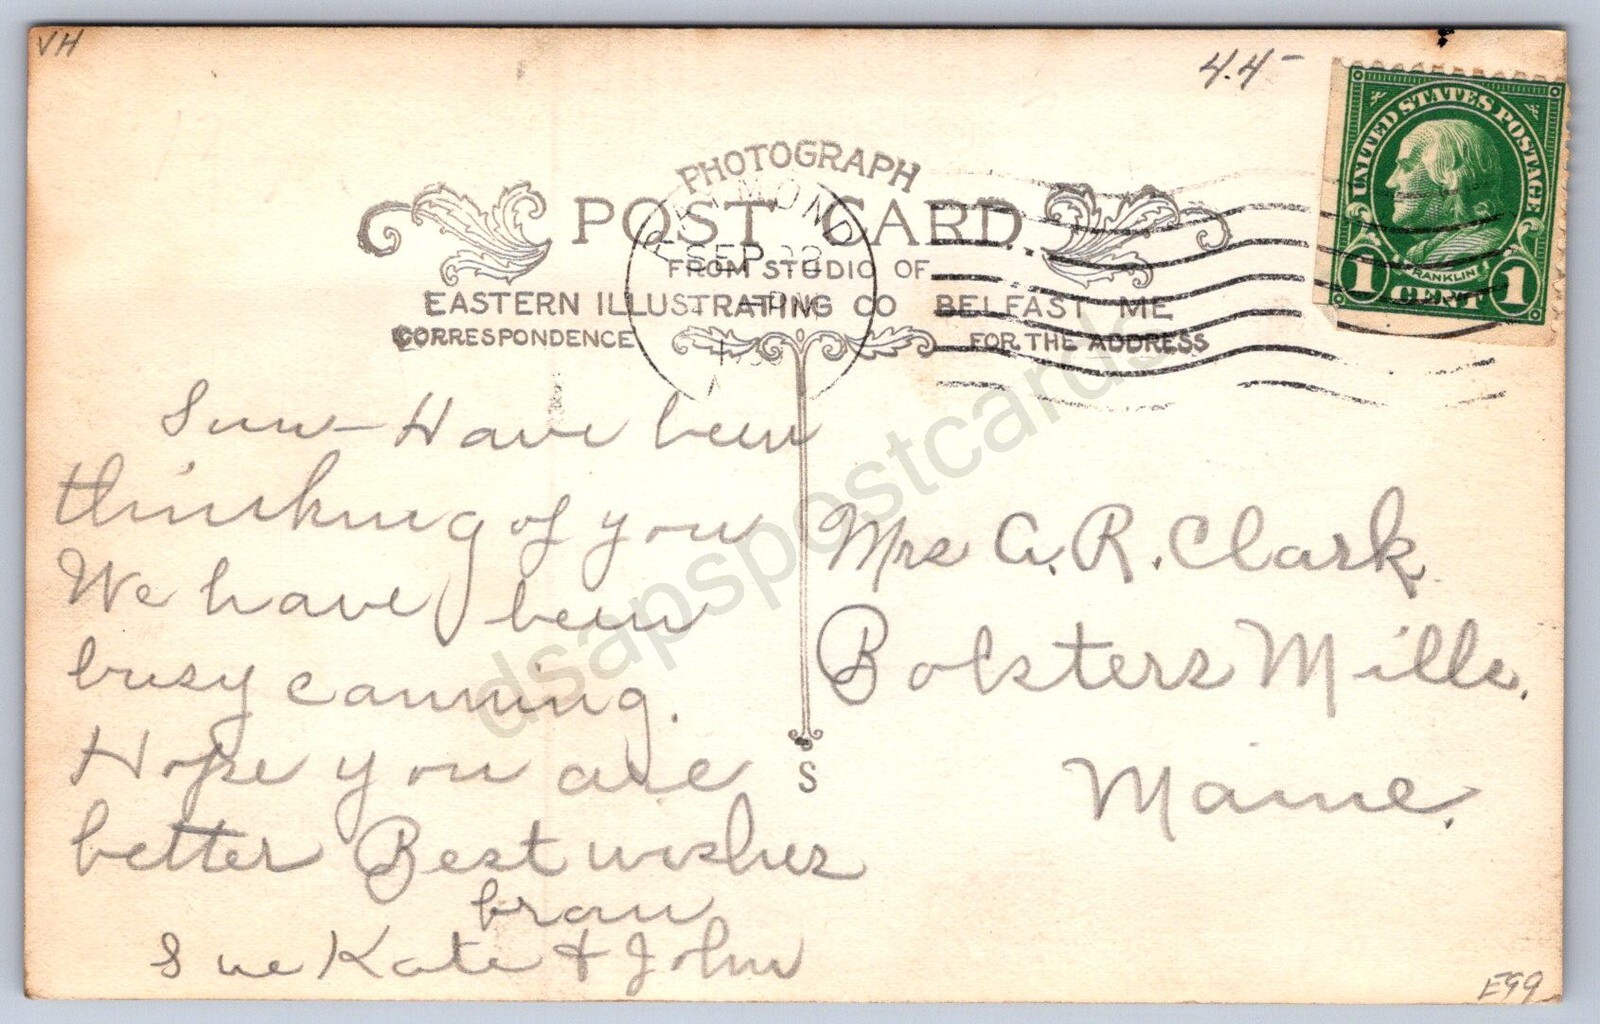 VH
4.4-
PHOTOGRAPH
POST CARD
FROM STUDIO OF
EASTERN ILLUSTRATING CO BELFAST ME
CORRESPONDENCE
FOR THE ADDRESS
SEP
UNITED STATES POSTAGE
FRANKLIN
1 CENT 1
Sun - Have been
thinking of you
We have been
busy canning.
Hope you are
better Best wishes
from
Sue Kate & John
Mrs A. R. Clark
Bolsters Mills.
Maine.
S
E99
dsapspostcards